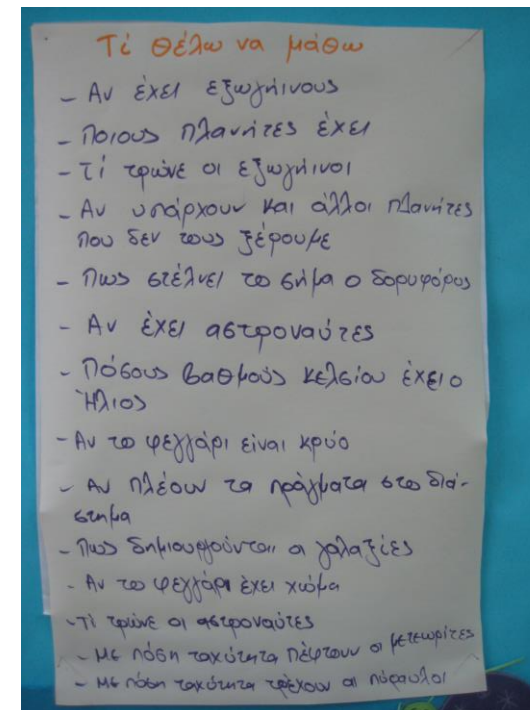 Τί θέλω να μάθω
- Αν έχει εξωγήινους
- Ποιους πλανήτες έχει
- Τί τρώνε οι εξωγήινοι
- Αν υπάρχουν και άλλοι πλανήτες
που δεν τους ξέρουμε
- Πως στέλνει το σήμα ο δορυφόρος
- Αν έχει αστροναύτες
- Πόσους βαθμούς κελσίου έχει ο
Ήλιος
- Αν το φεγγάρι είναι κρύο
- Αν πλέουν τα πράγματα στο διά-
στημα
- Πως δημιουργούνται οι γαλαξίες
- Αν το φεγγάρι έχει χώμα
- Τί τρώνε οι αστροναύτες
- Με πόση ταχύτητα πέφτουν οι μετεωρίτες
- Με πόση ταχύτητα τρέχουν οι πύραυλοι